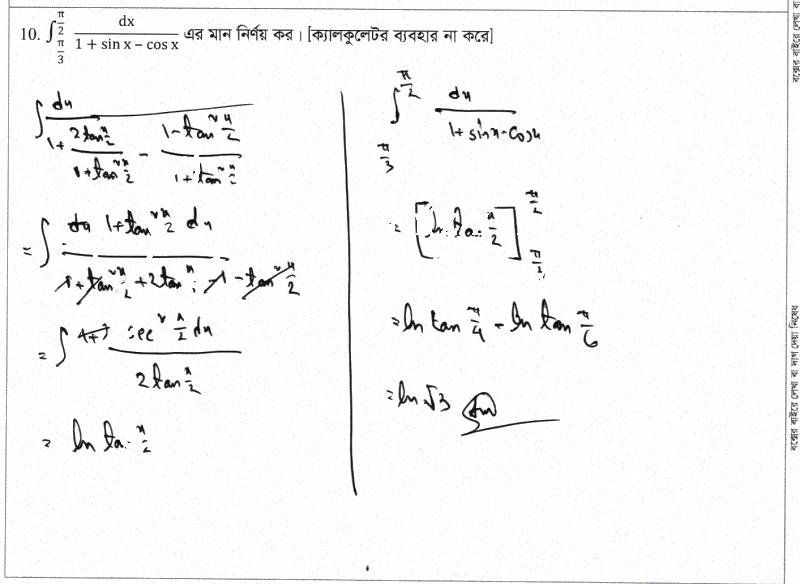 10. ∫_{π/3}^{π/2} dx / (1 + sin x – cos x) এর মান নির্ণয় কর। [ক্যালকুলেটর ব্যবহার না করে]
∫ dx / (1 + 2tan x/2 / (1+tan² x/2) - (1-tan² x/2) / (1+tan² x/2))
= ∫ dx 1+tan² x/2 dx / (1+tan² x/2 +2tan x/2 -1 -tan² x/2)
= ∫ sec² x/2 dx / 2tan x/2
= ln tan x/2
∫_{π/3}^{π/2} dx / (1+sinx-cosx)
= [ln tan x/2]_{π/3}^{π/2}
= ln tan π/4 - ln tan π/6
= ln √3 Ans
বক্সের বাইরে লেখা বা দাগ দেয়া নিষেধ